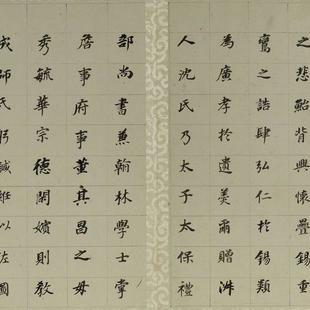 之悲鮐背興懷疊錫重
鸞之誥肆弘仁於錫類
為廣孝於遺羙爾贈淑
人沈氏乃太子太保禮
部尚書兼翰林學士掌
詹事府事董其昌之母
秀毓華宗德閑嬪則教
成師氏以左圖